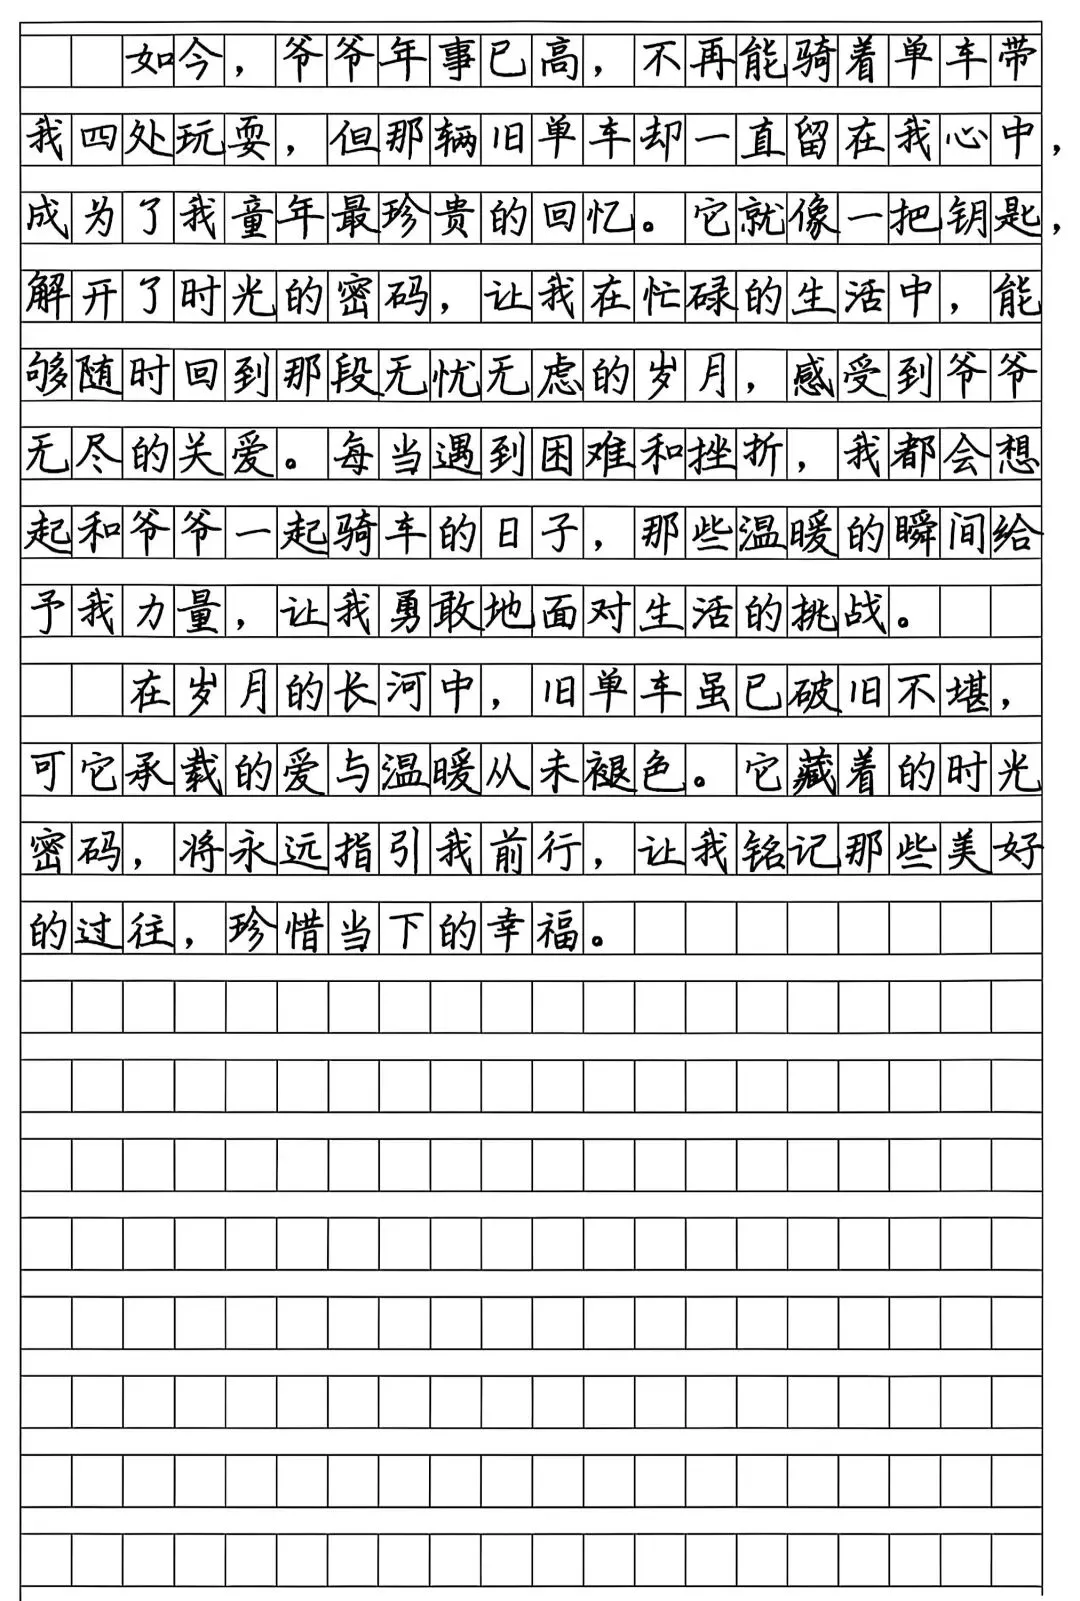 如今，爷爷年事已高，不再能骑着单车带
我四处玩耍，但那辆旧单车却一直留在我心中，
成为了我童年最珍贵的回忆。它就像一把钥匙，
解开了时光的密码，让我在忙碌的生活中，能
够随时回到那段无忧无虑的岁月，感受到爷爷
无尽的关爱。每当遇到困难和挫折，我都会想
起和爷爷一起骑车的日子，那些温暖的瞬间给
予我力量，让我勇敢地面对生活的挑战。
在岁月的长河中，旧单车虽已破旧不堪，
可它承载的爱与温暖从未褪色。它藏着的时光
密码，将永远指引我前行，让我铭记那些美好
的过往，珍惜当下的幸福。